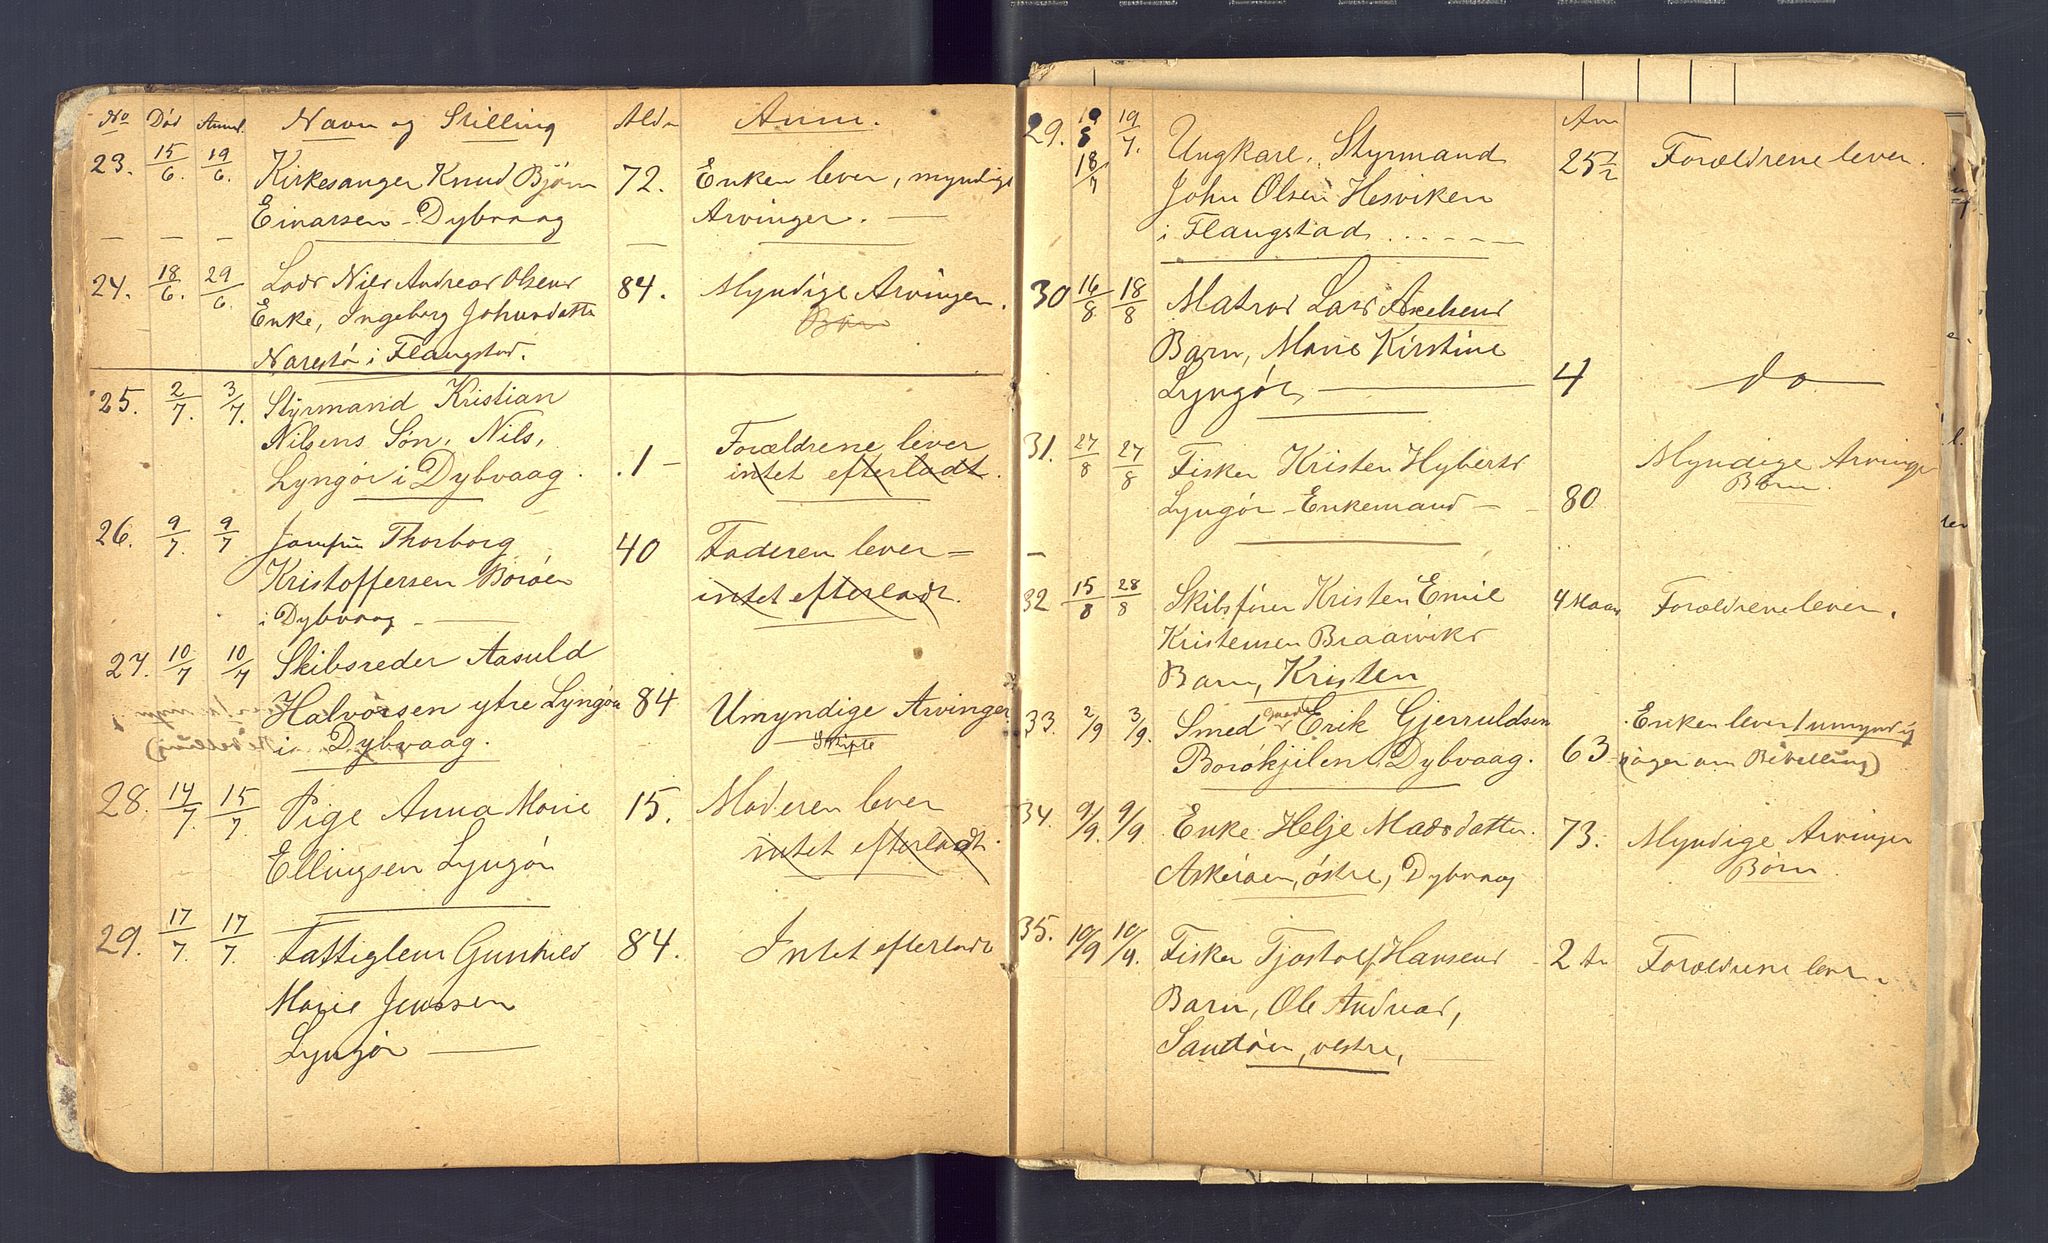 No Död Anm. Navn og Stilling Alder Anm.
23. 15/6. 19/6. Kirkesanger Knud Bjørn 72. Enken lever, myndige
Einarsen - Dybvaag Arvinger. —
24. 18/6. 29/6 Lods Niels Andreas Olsens 84. Myndige Arvinger.
Enke, Ingeborg Johnsdatter Børn
Narestø i Flangstad.
25. 2/7. 3/7. Styrmand Kristian
Nilsens Søn, Nils, Forældrene lever
Lyngør i Dybvaag. .1 — intet efterladt.
26. 9/7. 9/7 Jomfru Thorborg 40 Faderen lever =
Kristoffersen Borøen intet efterladt.
i Dybvaag —
27. 10/7 10/7 Skibsreder Aasuld
Halvorsen ytre Lyngør 84 Umyndige Arvinger
i Dybvaag. Skifte
28. 14/7. 15/7. Pige Anna Marie 15. Moderen lever
Ellingsen Lyngør intet efterladt.
29. 17/7. 17/7. Fattiglem Gunhild 84. Intet efterladt
Marie Jenssen
Lyngør —
29. 18/7 19/7. Ungkarl, Styrmand 25 1/2 Forældrene lever.
John Olsen Hesviken
i Flangstad
30 16/8 18/8 Matros Lars Axelsens
Barn, Marie Kirstine
Lyngør, — 4 do
31. 27/8 27/8 Fisker Kristen Hyberts Myndige Arvinger
Lyngør - Enkemand - - 80 Børn.
32 15/8 28/8 Skibsfører Kristen Emil 4 Maan Forældrene lever.
Kristensen Braaviks
Barn, Kristen
33. 2/9 3/9. Smed Erik Gjerruldsen Enken lever / umyndig
Borøkjilen Dybvaag. 63 (søger om Bevilling)
34. 9/9. 9/9. Enke Helje Madsdatter 73. Myndige Arvinger
Askerøen, østre, Dybvaag Børn
35. 10/9 10/9. Fisker Tjostolf Hansens 2 Forældrene lever.
Barn, Ole Andreas,
Sandøen, vestre, —